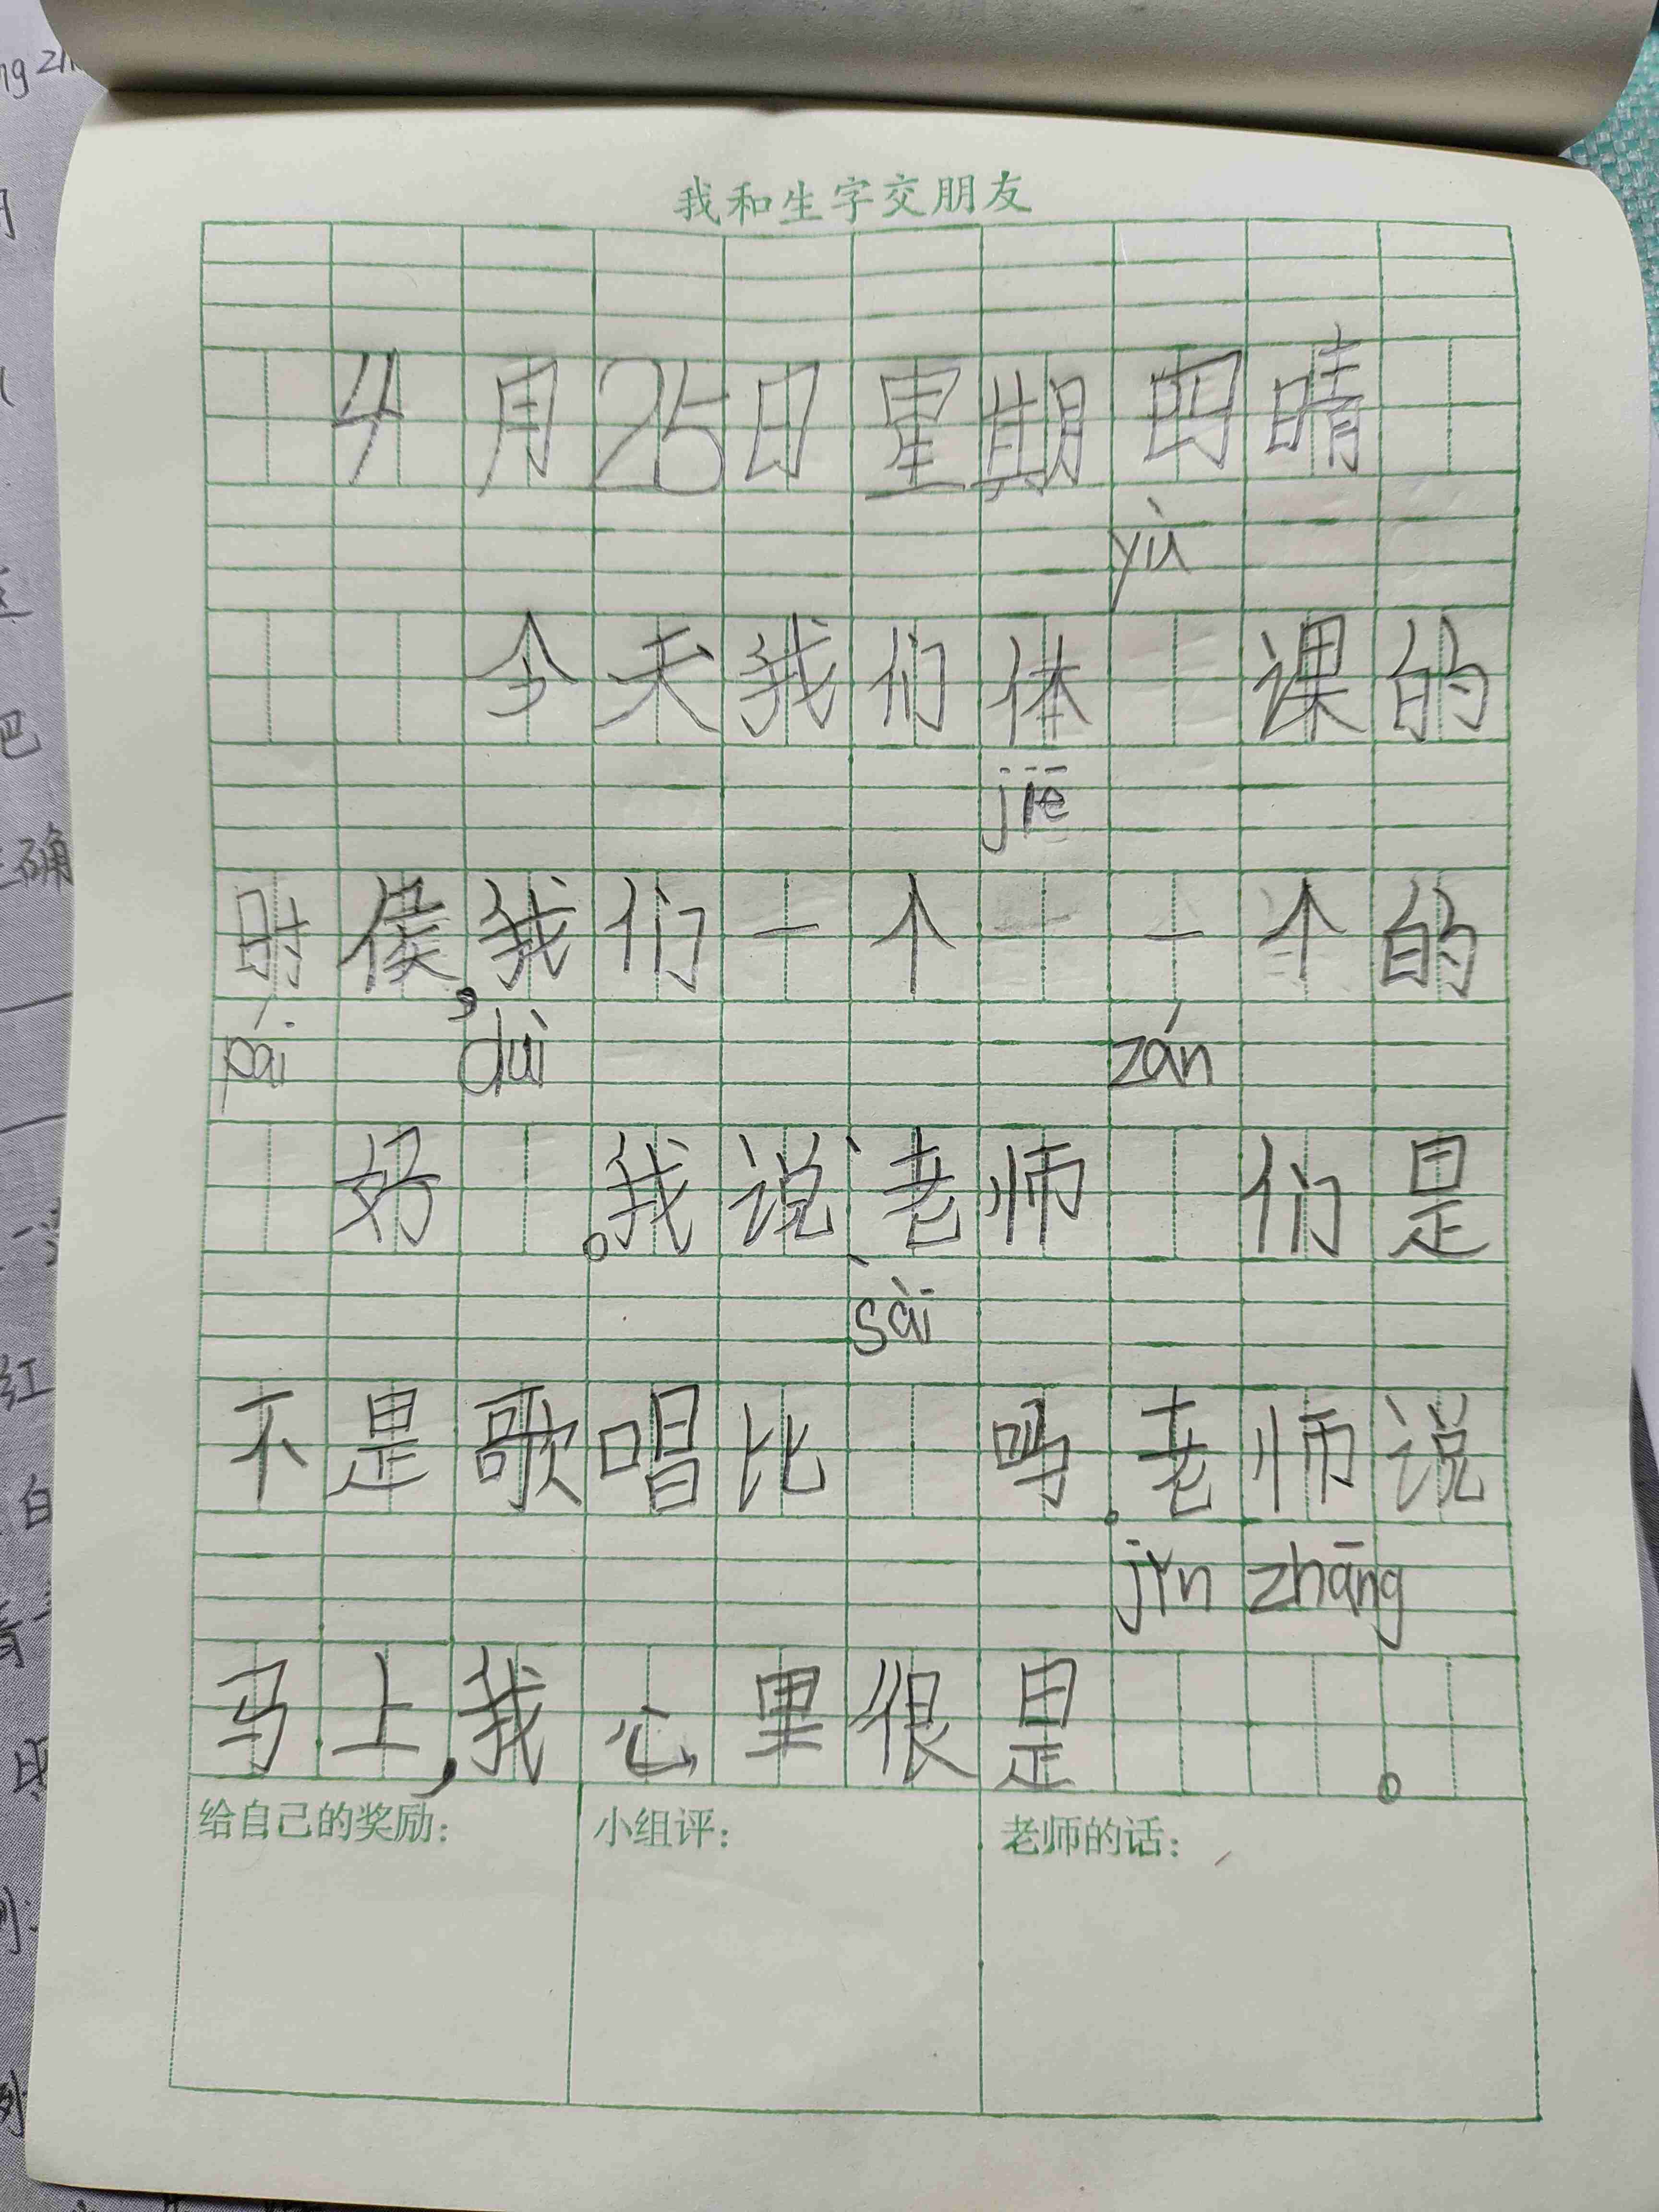 我和生字交朋友
4月25日星期四晴
yù
今天我们体 课的
jiē
时侯,我们一个 一个的
pái duì zán
好 。我说老师 们是
sài
不是歌唱比 吗。老师说
jǐn zhāng
马上,我心里很是 。
给自己的奖励: 小组评: 老师的话: